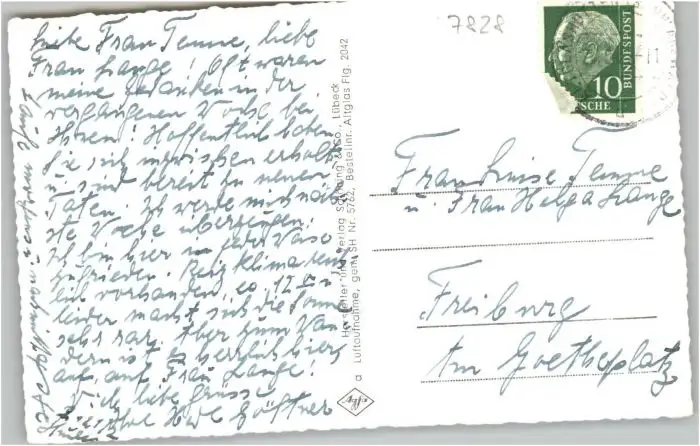 Liebe Frau Tenne, liebe
Frau Lange! Oft waren
meine Gedanken in der
vergangenen Woche bei
Ihnen! Hoffentlich haben
Sie sich inzwischen erholt
u. sind bereit zu neuen
Taten. Ich werde mich näch-
ste Woche überzeugen.
Ich bin hier in jeder Weise
zufrieden. Reizklima reich-
lich vorhanden,
leider macht sich die Sonne
sehr rar. Aber zum Wan-
dern ist es herrlich hier,
auf, auf Frau Lange!
liebe Grüsse
Ihre
7828
BUNDESPOST
10
Frau Luise Tenne
u. Frau Helga Lange
Freiburg
Am Goetheplatz
Hersteller und Verlag Schöning & Co., Lübeck
Luftaufnahme, gem. SH Nr. 5762, Bestellnr. Altglas Flg. 2042
a
Agfa